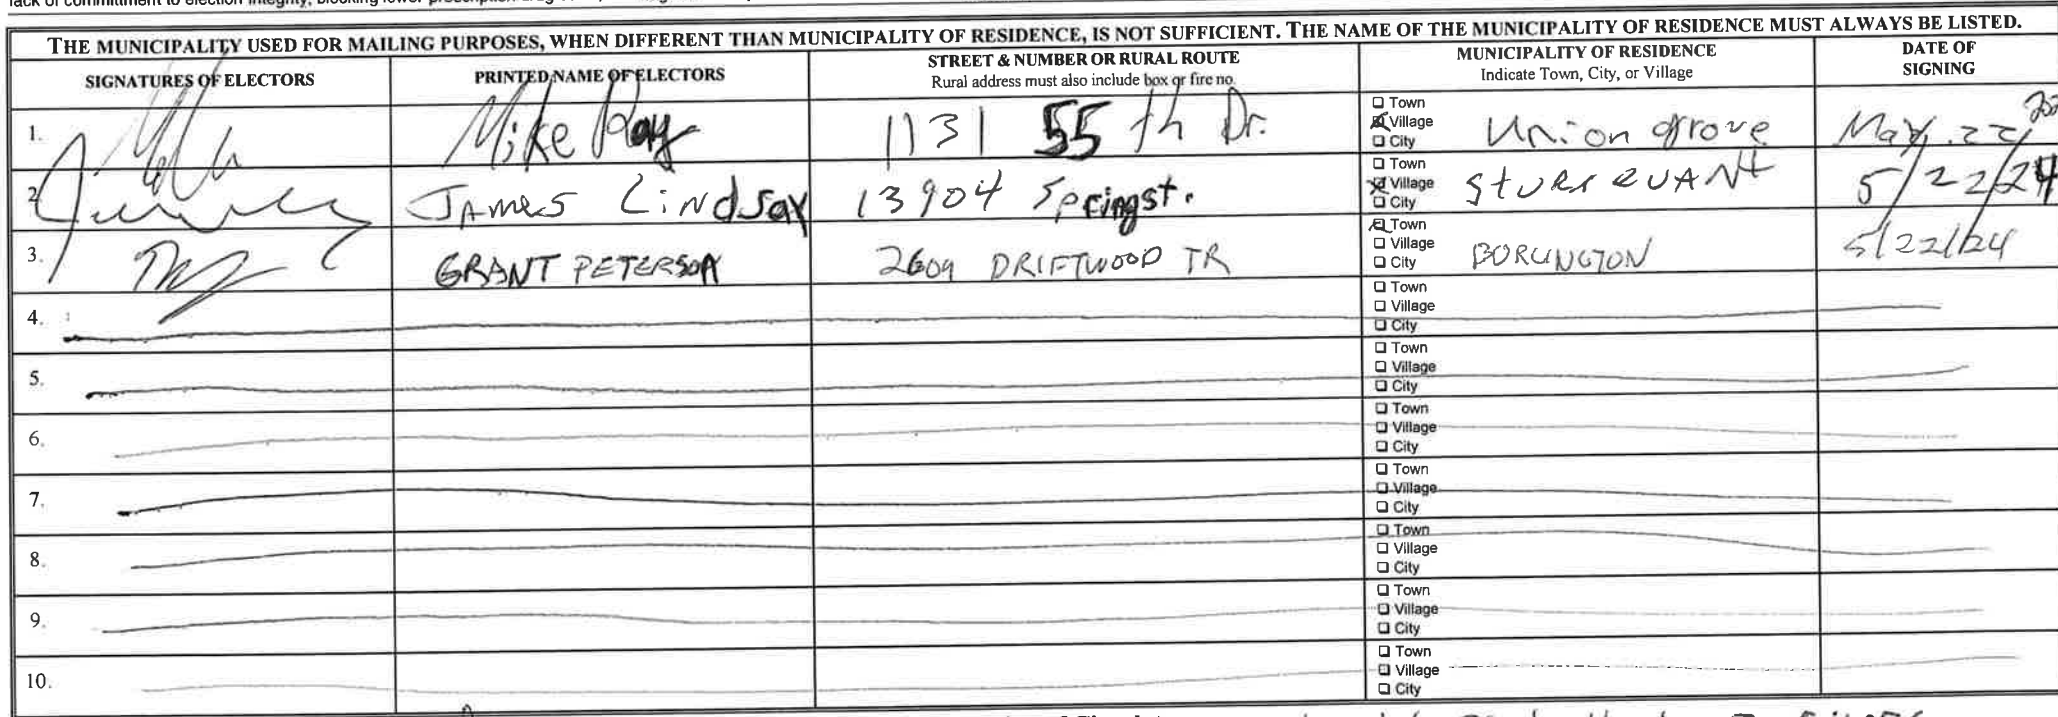 THE MUNICIPALITY USED FOR MAILING PURPOSES, WHEN DIFFERENT THAN MUNICIPALITY OF RESIDENCE, IS NOT SUFFICIENT. THE NAME OF THE MUNICIPALITY OF RESIDENCE MUST ALWAYS BE LISTED.
SIGNATURES OF ELECTORS
PRINTED NAME OF ELECTORS
STREET & NUMBER OR RURAL ROUTE
Rural address must also include box or fire no.
MUNICIPALITY OF RESIDENCE
Indicate Town, City, or Village
DATE OF
SIGNING
1. Mike Ray 1131 55 th Dr. Town
Village Union grove May. 22
City
2. JAMES LiNdsay 13904 Spring st. Town
Village StURtEVANt 5/22/24
City
3. GRANT PETERSON 2609 DRIFTWOOD TR Town
Village BURLINGTON 5/22/24
City
4. Town
Village
City
5. Town
Village
City
6. Town
Village
City
7. Town
Village
City
8. Town
Village
City
9. Town
Village
City
10. Town
Village
City